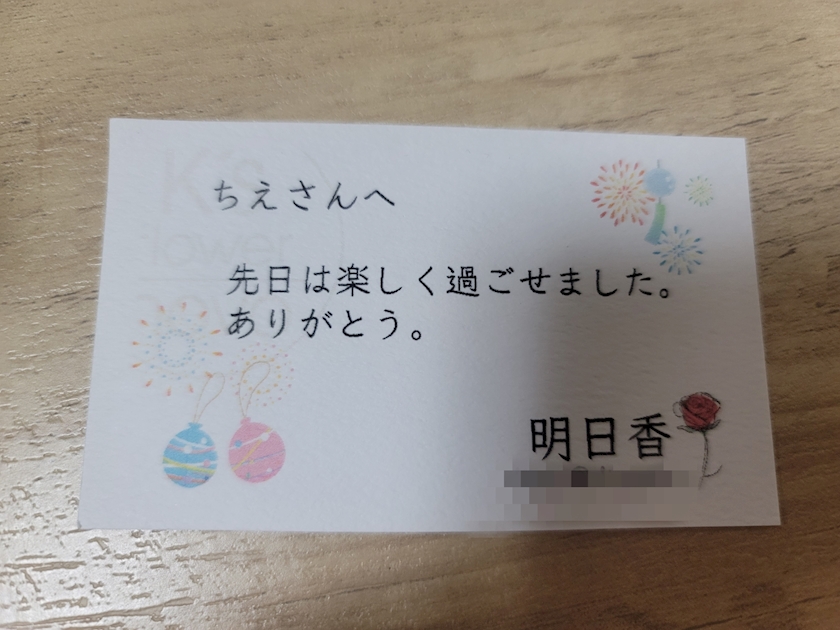 ちえさんへ
先日は楽しく過ごせました。
ありがとう。
明日香